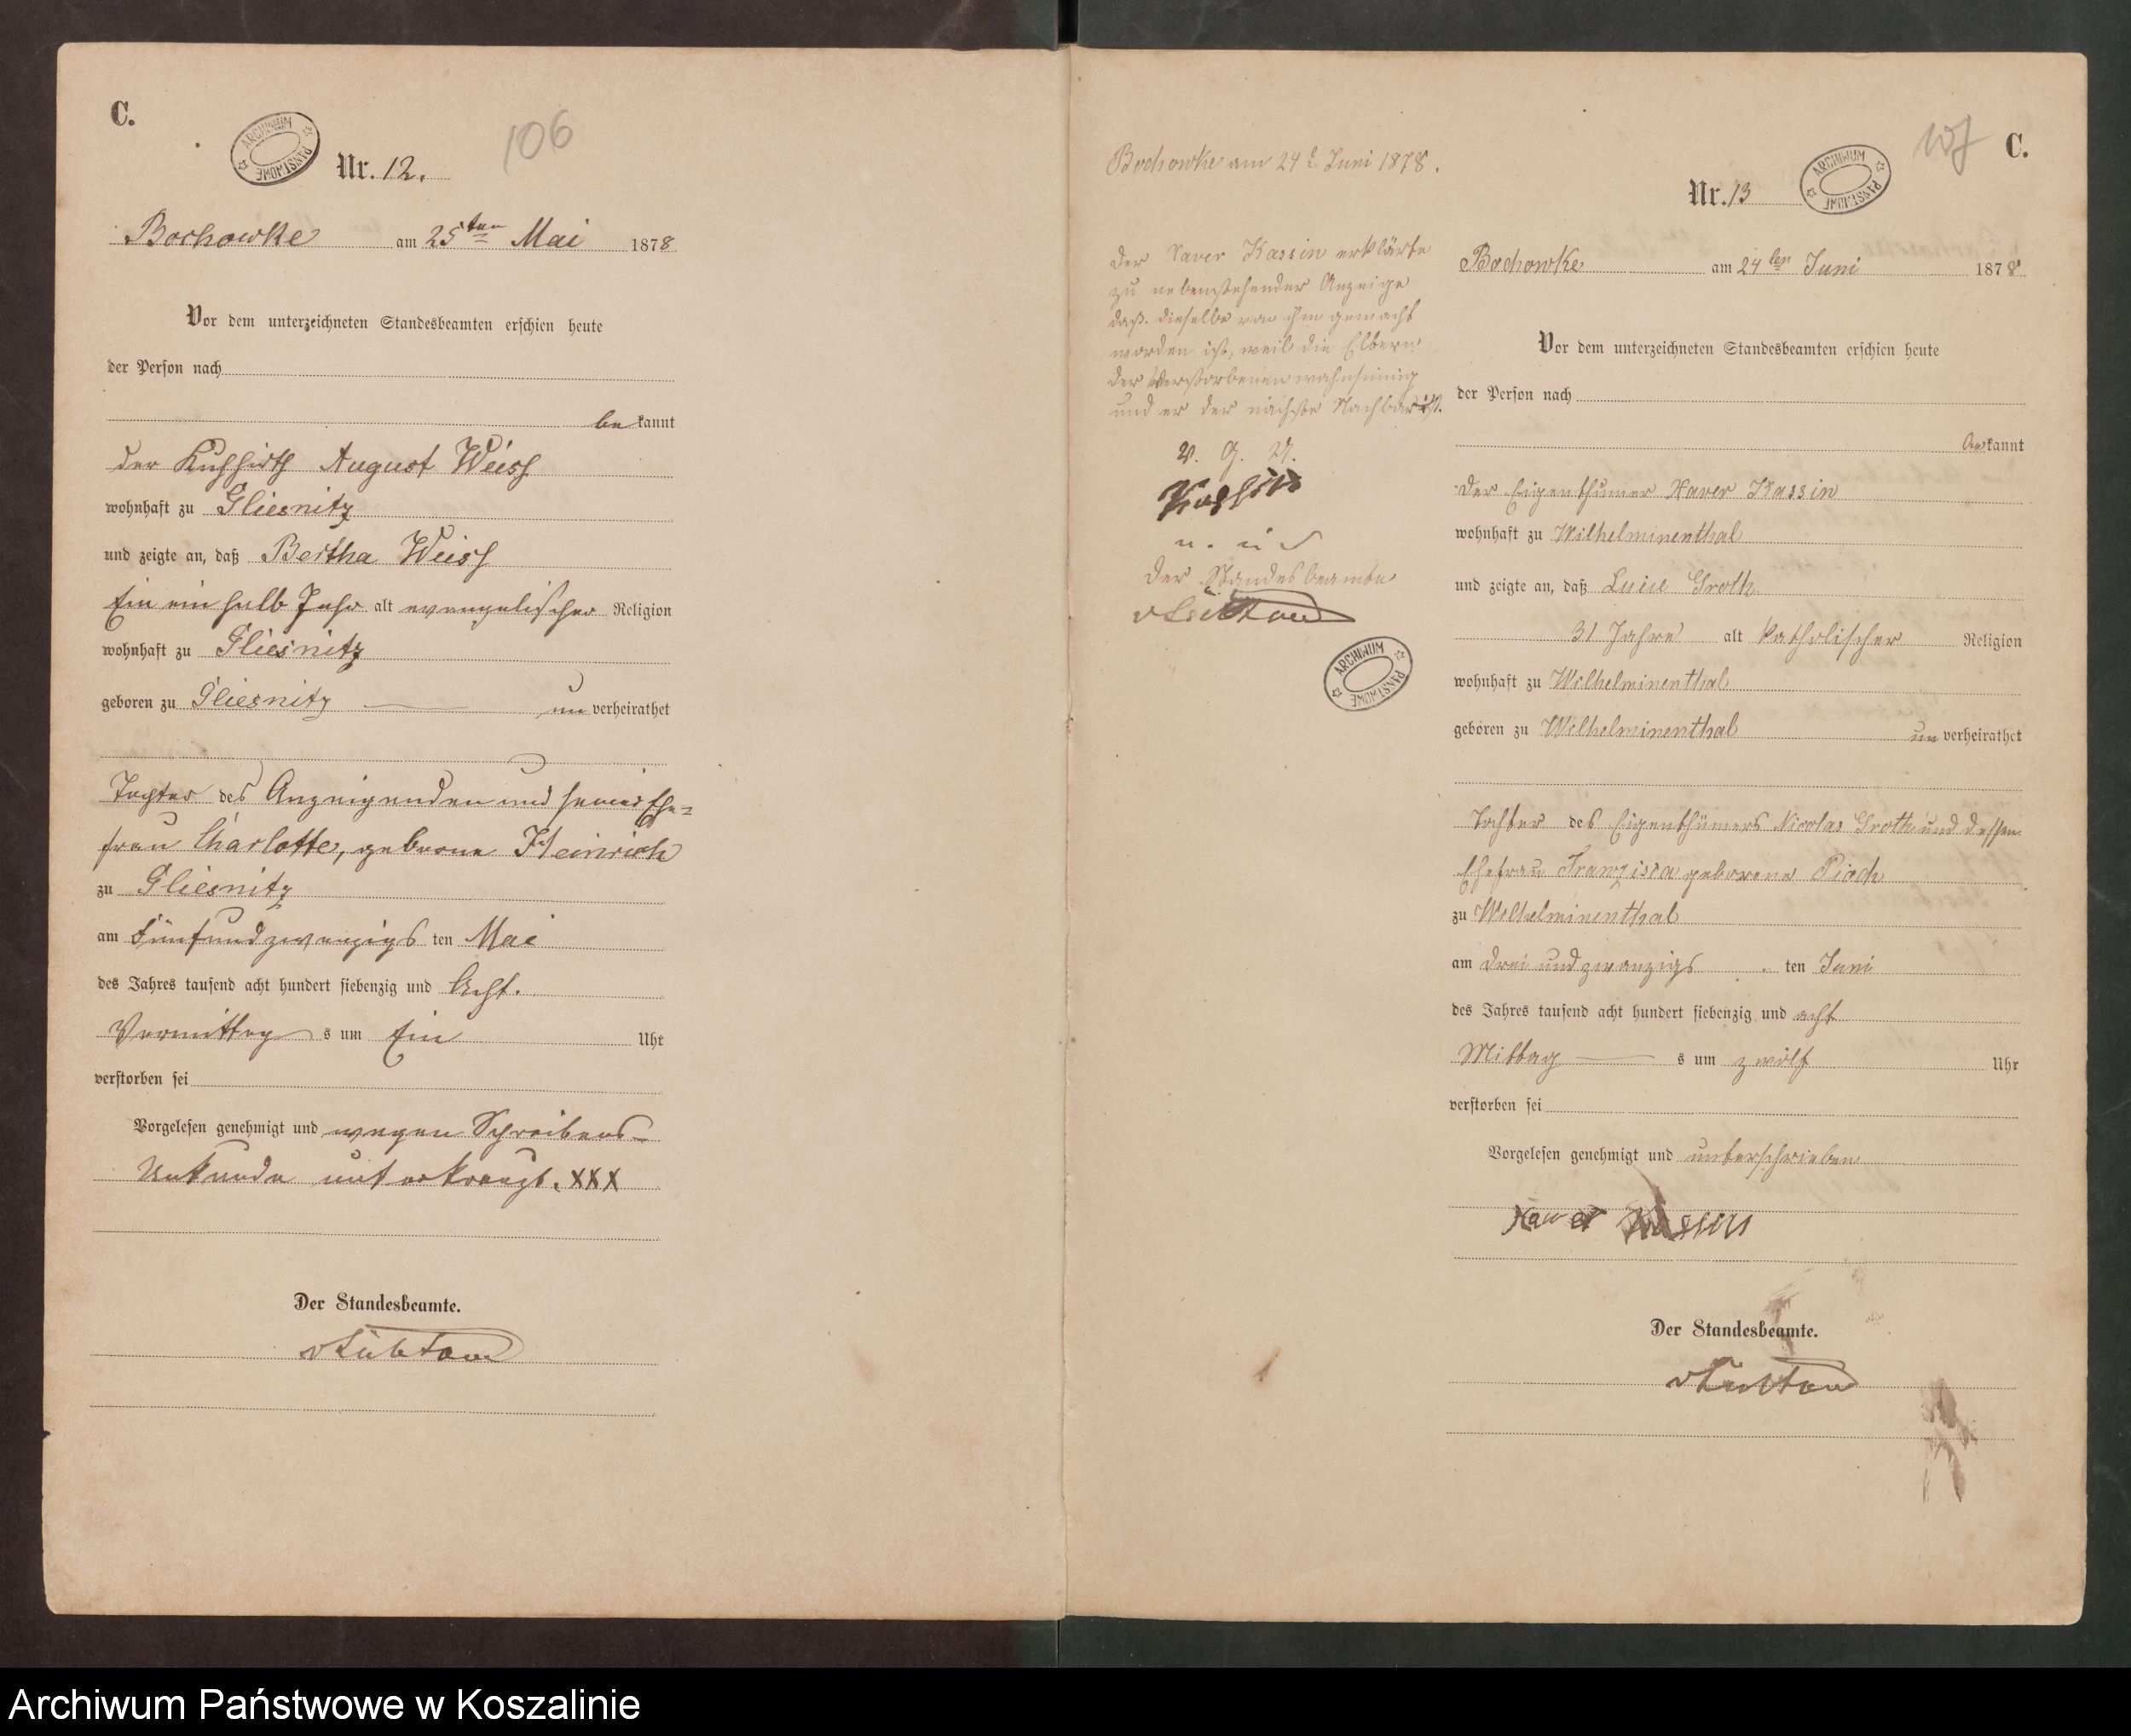 C.
ARCHIWUM PAŃSTWOWE
106
Nr. 12.
Bochowke am 25ten Mai 1878
Vor dem unterzeichneten Standesbeamten erschien heute
der Person nach
bekannt
der Kuhhirth August Weiss
wohnhaft zu Gliesnitz
und zeigte an, daß Bertha Weiss
Ein ein halb Jahr alt evangelischer Religion
wohnhaft zu Gliesnitz
geboren zu Gliesnitz unverheirathet
Tochter des Anzeigenden und seiner Ehe-
frau Charlotte, geborne Heinrich
zu Gliesnitz
am Fünfundzwanzigs ten Mai
des Jahres tausend acht hundert siebenzig und Acht.
Vormittag s um Ein Uhr
verstorben sei
Vorgelesen genehmigt und wegen Schreibens-
Unkunde unterkreuzt. XXX
Der Standesbeamte.
vLübtow
Bochowke am 24t Juni 1878.
Der Xaver Kassin erklärte
zu nebenstehender Anzeige
daß dieselbe von ihm gemacht
worden ist, weil die Eltern
der Verstorbenen wahnsinnig
und er der nächste Nachbar ist.
v. g. u.
Kassin
Der Standesbeamte
vLübtow
ARCHIWUM PAŃSTWOWE
107
C.
Nr. 13
ARCHIWUM PAŃSTWOWE
Bochowke am 24ten Juni 1878
Vor dem unterzeichneten Standesbeamten erschien heute
der Person nach
bekannt
der Eigenthümer Xaver Kassin
wohnhaft zu Wilhelminenthal
und zeigte an, daß Lucie Groth
31 Jahre alt katholischer Religion
wohnhaft zu Wilhelminenthal
geboren zu Wilhelminenthal unverheirathet
Tochter des Eigenthümers Nicolas Groth und dessen
Ehefrau Franzisca geborene Pioch
zu Wilhelminenthal
am drei und zwanzigs ten Juni
des Jahres tausend acht hundert siebenzig und acht
Mittag s um zwölf Uhr
verstorben sei
Vorgelesen genehmigt und unterschrieben
Xaver Kassin
Der Standesbeamte.
vLübtow
Archiwum Państwowe w Koszalinie